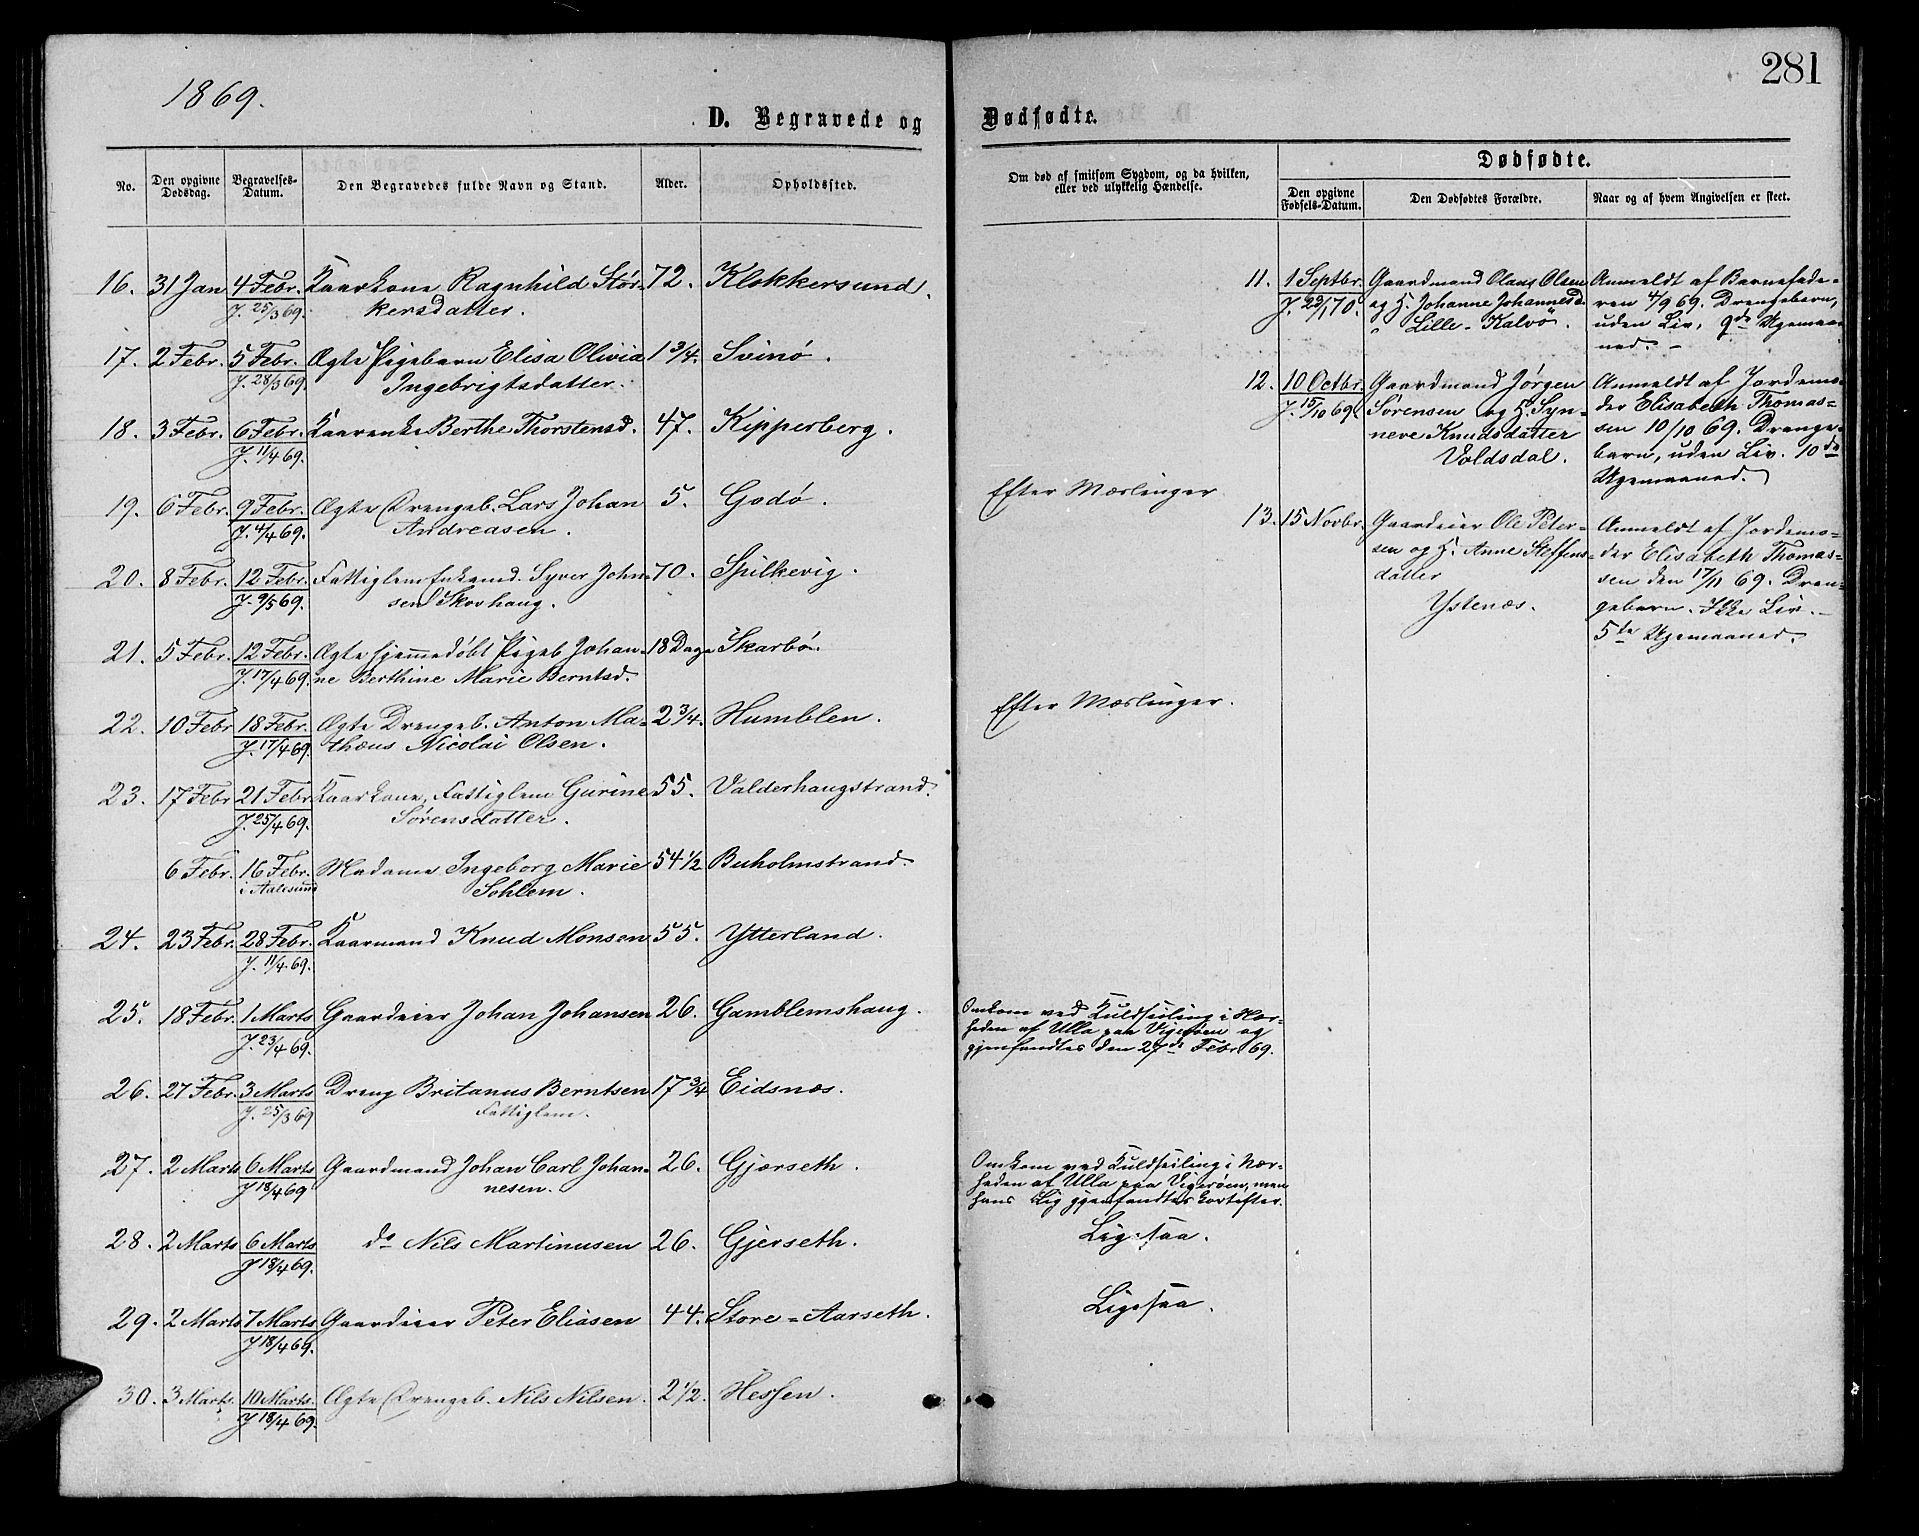 1869.
281
D. Begravede og Dødfødte.
No.
Den opgivne Dødsdag.
Begravelses-Datum.
Den Begravedes fulde Navn og Stand.
Alder.
Opholdssted.
Om død af smitsom Sygdom, og da hvilken,
eller ved ulykkelig Hændelse.
Dødfødte.
Den opgivne Fødsels-Datum.
Den Dødfødtes Forældre.
Naar og af hvem Angivelsen er skeet.
16. 31 Jan 4 Febr. Kaarkone Ragnhild Stør- 72. Klokkersund.
J. 25/3 69. kersdatter.
17. 2 Febr. 5 Febr. Ægte Pigebarn Elisa Olivia 1 3/4. Svinø.
J. 28/3 69 Ingebrigtsdatter.
18. 3 Febr. 6 Febr. Kaarenke Berthe Thorstensd. 47. Kipperberg.
J. 11/4 69.
19. 6 Febr. 9 Febr. Ægte Drengeb. Lars Johan 5. Godø. Efter Mæslinger
J. 4/4 69. Andreasen.
20. 8 Febr. 12 Febr. Fattiglem Enkemd. Syver John- 70. Spilkevig.
J. 9/5 69. sen Skoshaug.
21. 5 Febr. 12 Febr. Ægte hjemmedøbt Pigeb Johan- 18 Dage Skarbø.
J. 17/4 69. ne Berthine Marie Berntsd.
22. 10 Febr 18 Febr. Ægte Drengeb. Anton Ma- 2 3/4. Humblen. Efter Mæslinger.
J. 17/4 69. thæus Nicolai Olsen.
23. 17 Febr 21 Febr Kaarkone, Fattiglem Gurine 55. Valderhaugstrand.
J. 25/4 69. Sørensdatter.
6 Febr. 16 Febr. Madame Ingeborg Marie 54 1/2 Buholmstrand.
i Aalesund Sohlem.
24. 23 Febr. 28 Febr. Kaarmand Knud Monsen 55. Ytterland.
J. 11/4 69.
25. 18 Febr. 1 Marts Gaardeier Johan Johansen 26. Gamblemshaug. Omkom ved Kuldseiling i Nær-
J. 23/4 69. heden af Ulla paa Vigerøen og
gjenfandtes den 27de Febr 69.
26. 27 Febr. 3 Marts Dreng Britanus Berntsen 17 3/4 Eidsnæs.
J. 25/3 69 Fattiglem.
27. 2 Marts 6 Marts Gaardmand Johan Carl Johan- 26. Gjærseth. Omkom ved Kuldseiling i Nær-
J 18/4 69 nesen. heden af Ulla paa Vigerøen, men
hans Lig gjenfandtes kortefter.
28. 2 Marts 6 Marts do Nils Martinusen 26. Gjerseth. Ligesaa.
J 18/4 69.
29. 2 Marts 7 Marts Gaardeier Peter Eliasen 44. Store-Aarseth. Ligesaa.
J 18/4 69.
30. 3 Marts. 10 Marts. Ægte Drengeb. Nils Nilsen. 2 1/2. Hessen.
J 18/4 69.
11. 1 Septbr. Gaardmand Olaus Olsen Anmeldt af Barnefade-
J. 23/1 70. og H. Johanne Johannesd. ren 4/9 69. Drengebarn,
Lille-Kalvö. uden Liv. 9de Ugemaa-
ned. -
12. 10 Octbr. Gaardmand Jørgen Anmeldt af Jordemo-
J. 15/10 69. Sørensen og H. Syn- der Elisabeth Thomas-
neve Knudsdatter sen 10/10 69. Drenge-
Voldsdal. barn, uden Liv. 10de
Ugemaaned.
13. 15 Novbr. Gaardeier Ole Peter- Anmeldt af Jordemo-
sen og H. Anne Steffens- der Elisabeth Thomas-
datter sen den 17/11 69. Dren-
Ystenæs. gebarn. Ikke Liv. -
5te Ugemaaned.